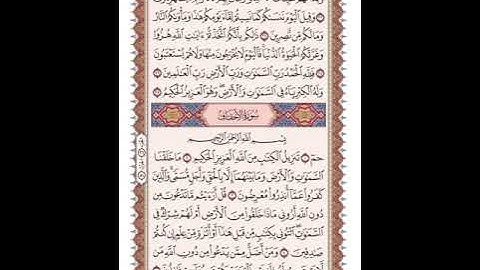 وَقِيلَ ٱلْيَوْمَ نَنسَىٰكُمْ كَمَا نَسِيتُمْ لِقَآءَ يَوْمِكُمْ هَٰذَا وَمَأْوَىٰكُمُ ٱلنَّارُ
وَمَا لَكُم مِّن نَّٰصِرِينَ ذَٰلِكُم بِأَنَّكُمُ ٱتَّخَذْتُمْ ءَايَٰتِ ٱللَّهِ هُزُوًا
وَغَرَّتْكُمُ ٱلْحَيَوٰةُ ٱلدُّنْيَا فَٱلْيَوْمَ لَا يُخْرَجُونَ مِنْهَا وَلَا هُمْ يُسْتَعْتَبُونَ
فَلِلَّهِ ٱلْحَمْدُ رَبِّ ٱلسَّمَٰوَٰتِ وَرَبِّ ٱلْأَرْضِ رَبِّ ٱلْعَٰلَمِينَ
وَلَهُ ٱلْكِبْرِيَآءُ فِى ٱلسَّمَٰوَٰتِ وَٱلْأَرْضِ وَهُوَ ٱلْعَزِيزُ ٱلْحَكِيمُ
سُورَةُ ٱلْأَحْقَافِ
بِسْمِ ٱللَّهِ ٱلرَّحْمَٰنِ ٱلرَّحِيمِ
حمٓ تَنزِيلُ ٱلْكِتَٰبِ مِنَ ٱللَّهِ ٱلْعَزِيزِ ٱلْحَكِيمِ مَا خَلَقْنَا
ٱلسَّمَٰوَٰتِ وَٱلْأَرْضَ وَمَا بَيْنَهُمَآ إِلَّا بِٱلْحَقِّ وَأَجَلٍ مُّسَمًّى وَٱلَّذِينَ
كَفَرُوا۟ عَمَّآ أُنذِرُوا۟ مُعْرِضُونَ قُلْ أَرَءَيْتُم مَّا تَدْعُونَ مِن
دُونِ ٱللَّهِ أَرُونِى مَاذَا خَلَقُوا۟ مِنَ ٱلْأَرْضِ أَمْ لَهُمْ شِرْكٌ فِى
ٱلسَّمَٰوَٰتِ ٱئْتُونِى بِكِتَٰبٍ مِّن قَبْلِ هَٰذَآ أَوْ أَثَٰرَةٍ مِّنْ عِلْمٍ إِن كُنتُمْ
صَٰدِقِينَ وَمَنْ أَضَلُّ مِمَّن يَدْعُوا۟ مِن دُونِ ٱللَّهِ مَن